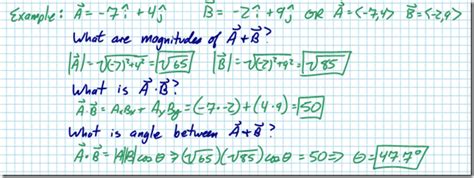 Example: A⃗ = -7î + 4ĵ B⃗ = -2î + 9ĵ OR A⃗ = <-7,4> B⃗ = <-2,9>
What are magnitudes of A⃗ + B⃗?
|A⃗| = √(-7)²+4² = √65 |B⃗| = √(-2)²+9² = √85
What is A⃗ · B⃗?
A⃗ · B⃗ = AxBx + AyBy = (-7·-2) + (4·9) = 50
What is angle between A⃗ + B⃗?
A⃗ · B⃗ = |A||B| cos θ ⇒ (√65)(√85) cos θ = 50 ⇒ θ = 47.7°